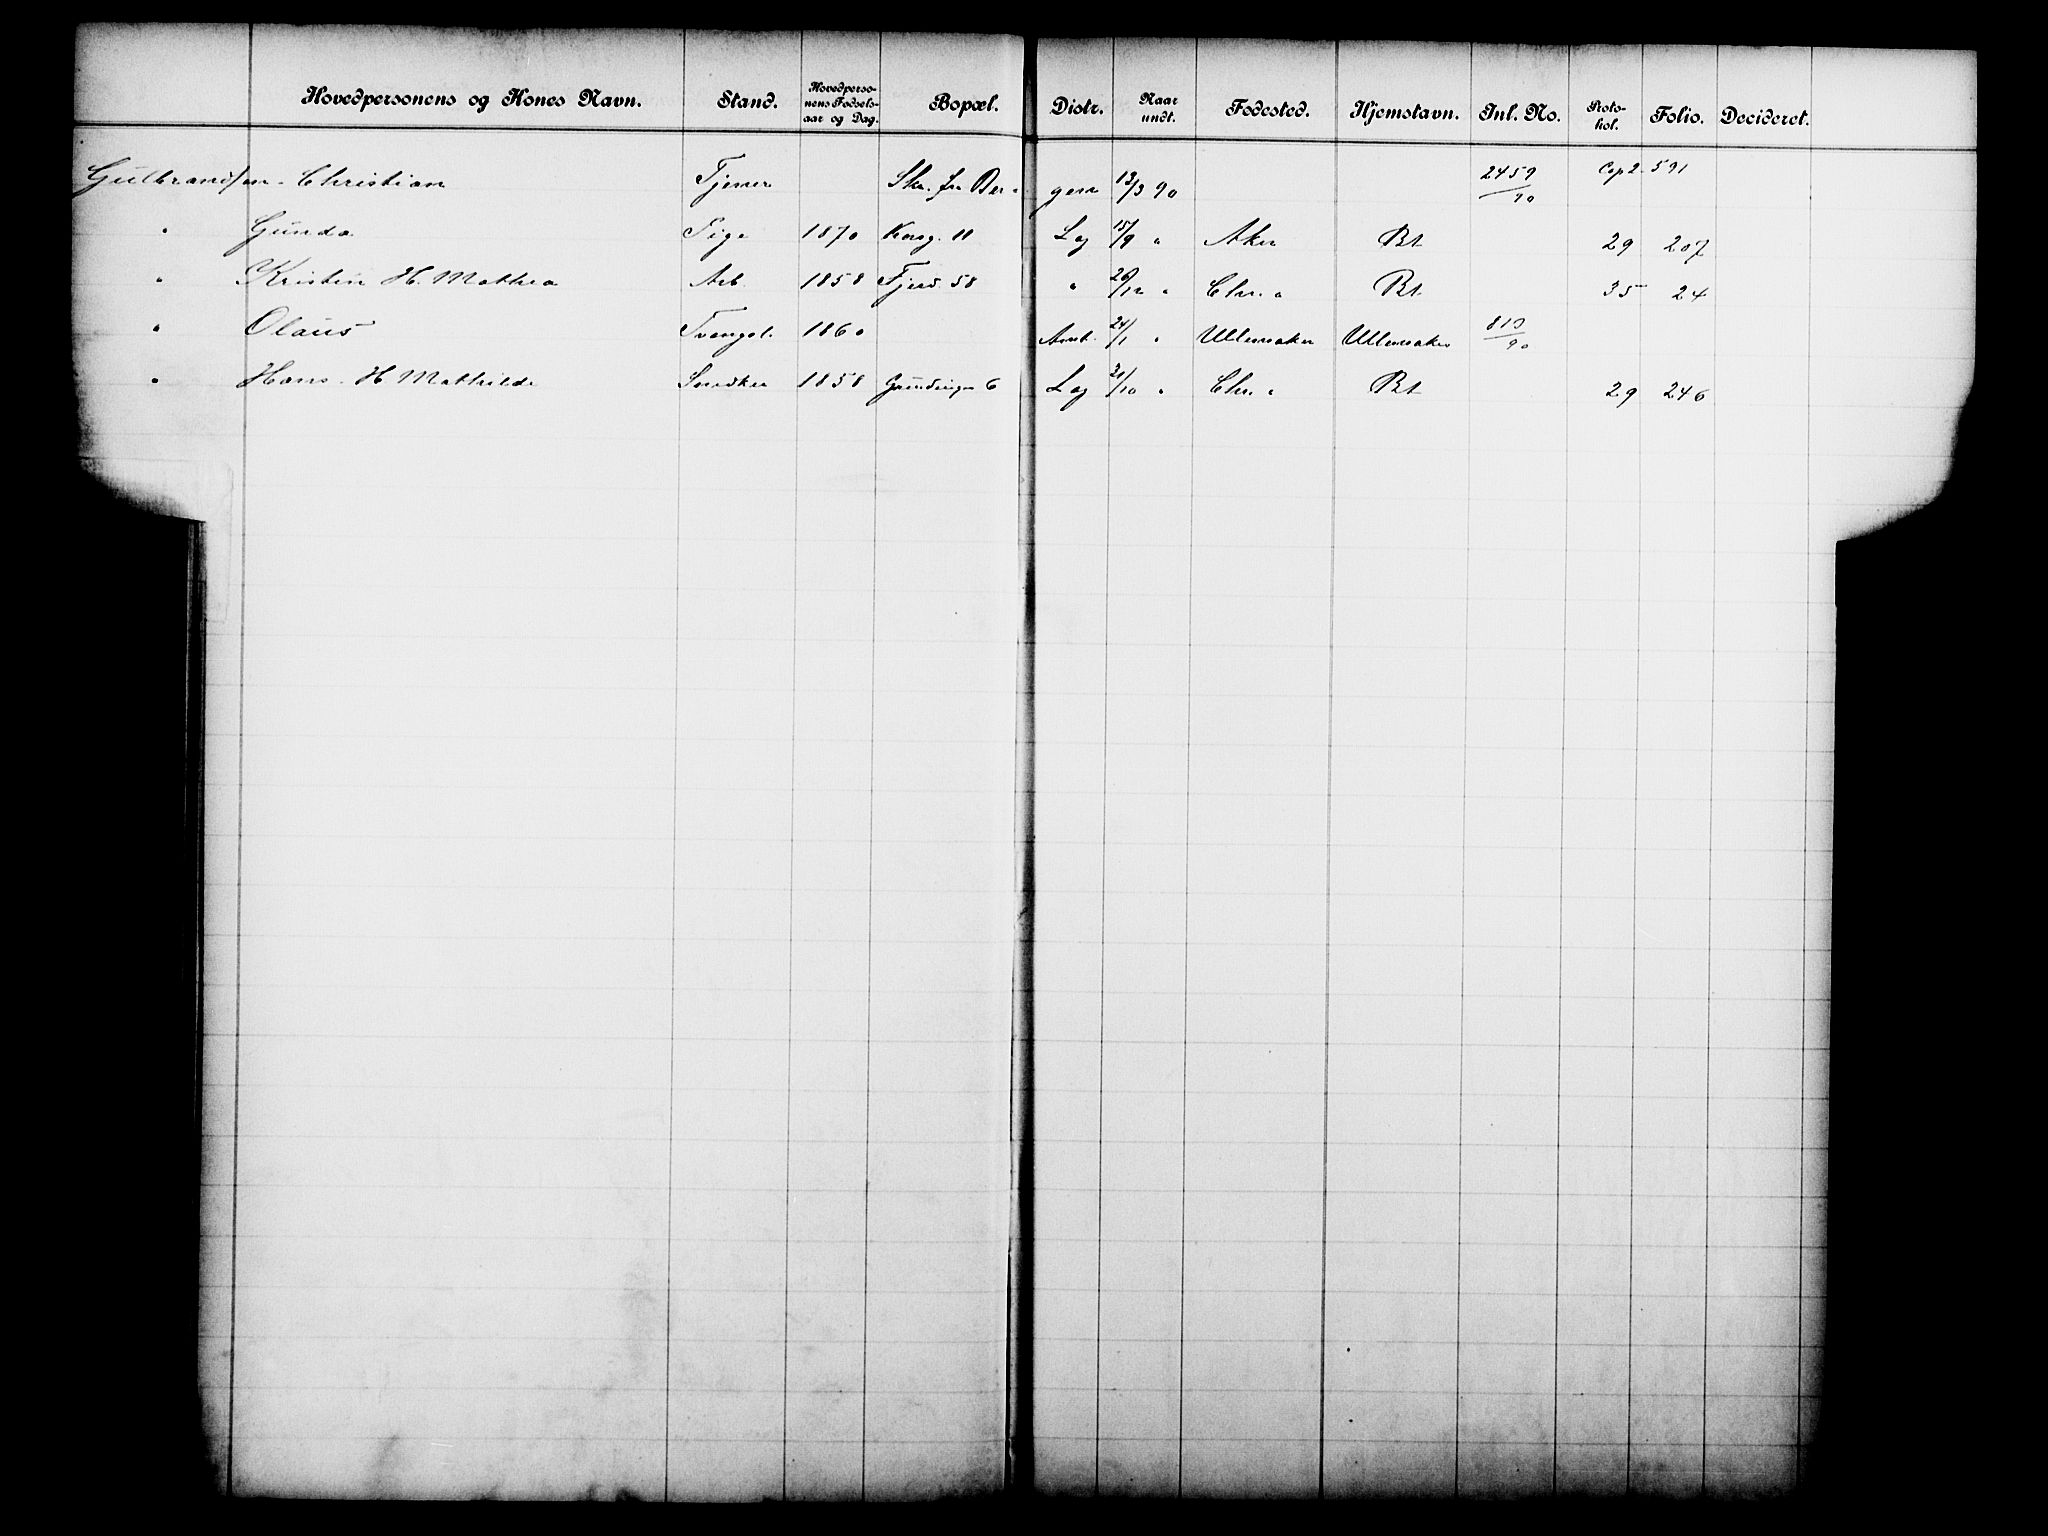 Hovedpersonens og Kones Navn. Stand. Hovedpersonens Fødselsaar og Dag. Bopæl. Distr. Naar undt. Fødested. Hjemstavn. Inl. No. Protokol. Folio. Decideret.
Gulbrandsen. Christian Tjener Skr. fra Bergen 13/3 90 2459/90 Cop 2. 591
" Gunda Pige 1870 Korsg. 11 Lag 15/9 " Aker Bt 29 207
" Kristin H. Mathea Arb. 1858 Fjerd. 58 " 20/12 " Chr. a Bt 35 24
" Olaus Tvangsl. 1860 24/1 " Ullensaker Ullensaker 810/90
" Hans. H. Mathilde Snedker 1858 Grundingen 6 Lag 21/10 " Chr. a Bt 29 246